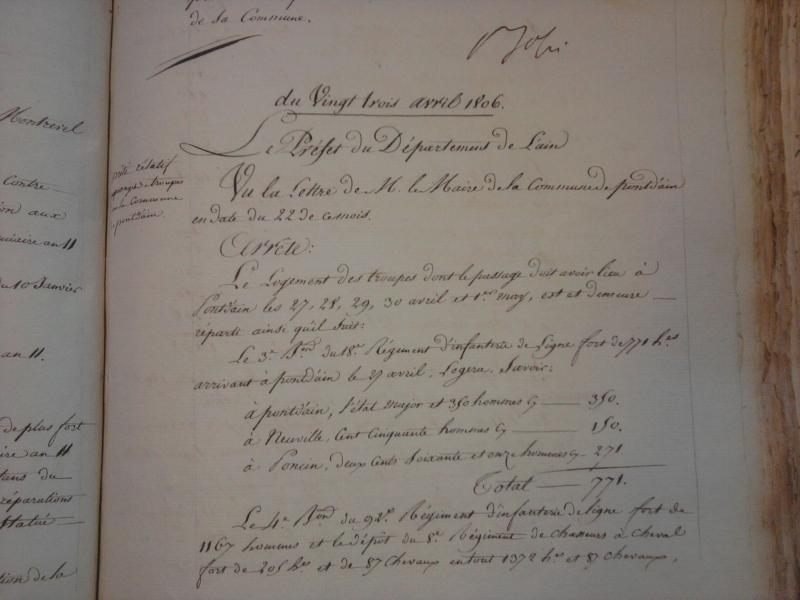 de la Commune.
du Vingt trois avril 1806.
Le Préfet du Département de L'ain
Vu la Lettre de M. le Maire de la Commune de pontd'ain
en date du 22 de ce mois.
Arrête:
Le Logement des troupes dont le passage doit avoir lieu à
Pontd'ain les 27, 28, 29, 30 avril et 1er may, est et demeure
réparti ainsi qu'il suit:
Le 3e Bon du 18e Régiment d'infanterie de Ligne fort de 771 hes
arrivant à pontd'ain le 27 avril, Logera, Savoir:
à pontd'ain, l'état major et 350 hommes Cy — 350.
à Neuville, Cent Cinquante hommes Cy — 150.
à Poncin, deux Cents Soixante et onze hommes Cy — 271
Total — 771.
Le 4e Bon du 92e Régiment d'infanterie de Ligne fort de
1167 hommes et le dépôt du 8e Régiment de chasseurs à cheval
fort de 205 hes et de 87 Chevaux en tout 1372 hes et 87 chevaux,
relatif
la Commune
pontd'ain.
Montrevel
Contre
ion aux
an 11
du 10 Janvier
an 11.
de plus fort
an 11
tans du
réparations
Statué
tion de la